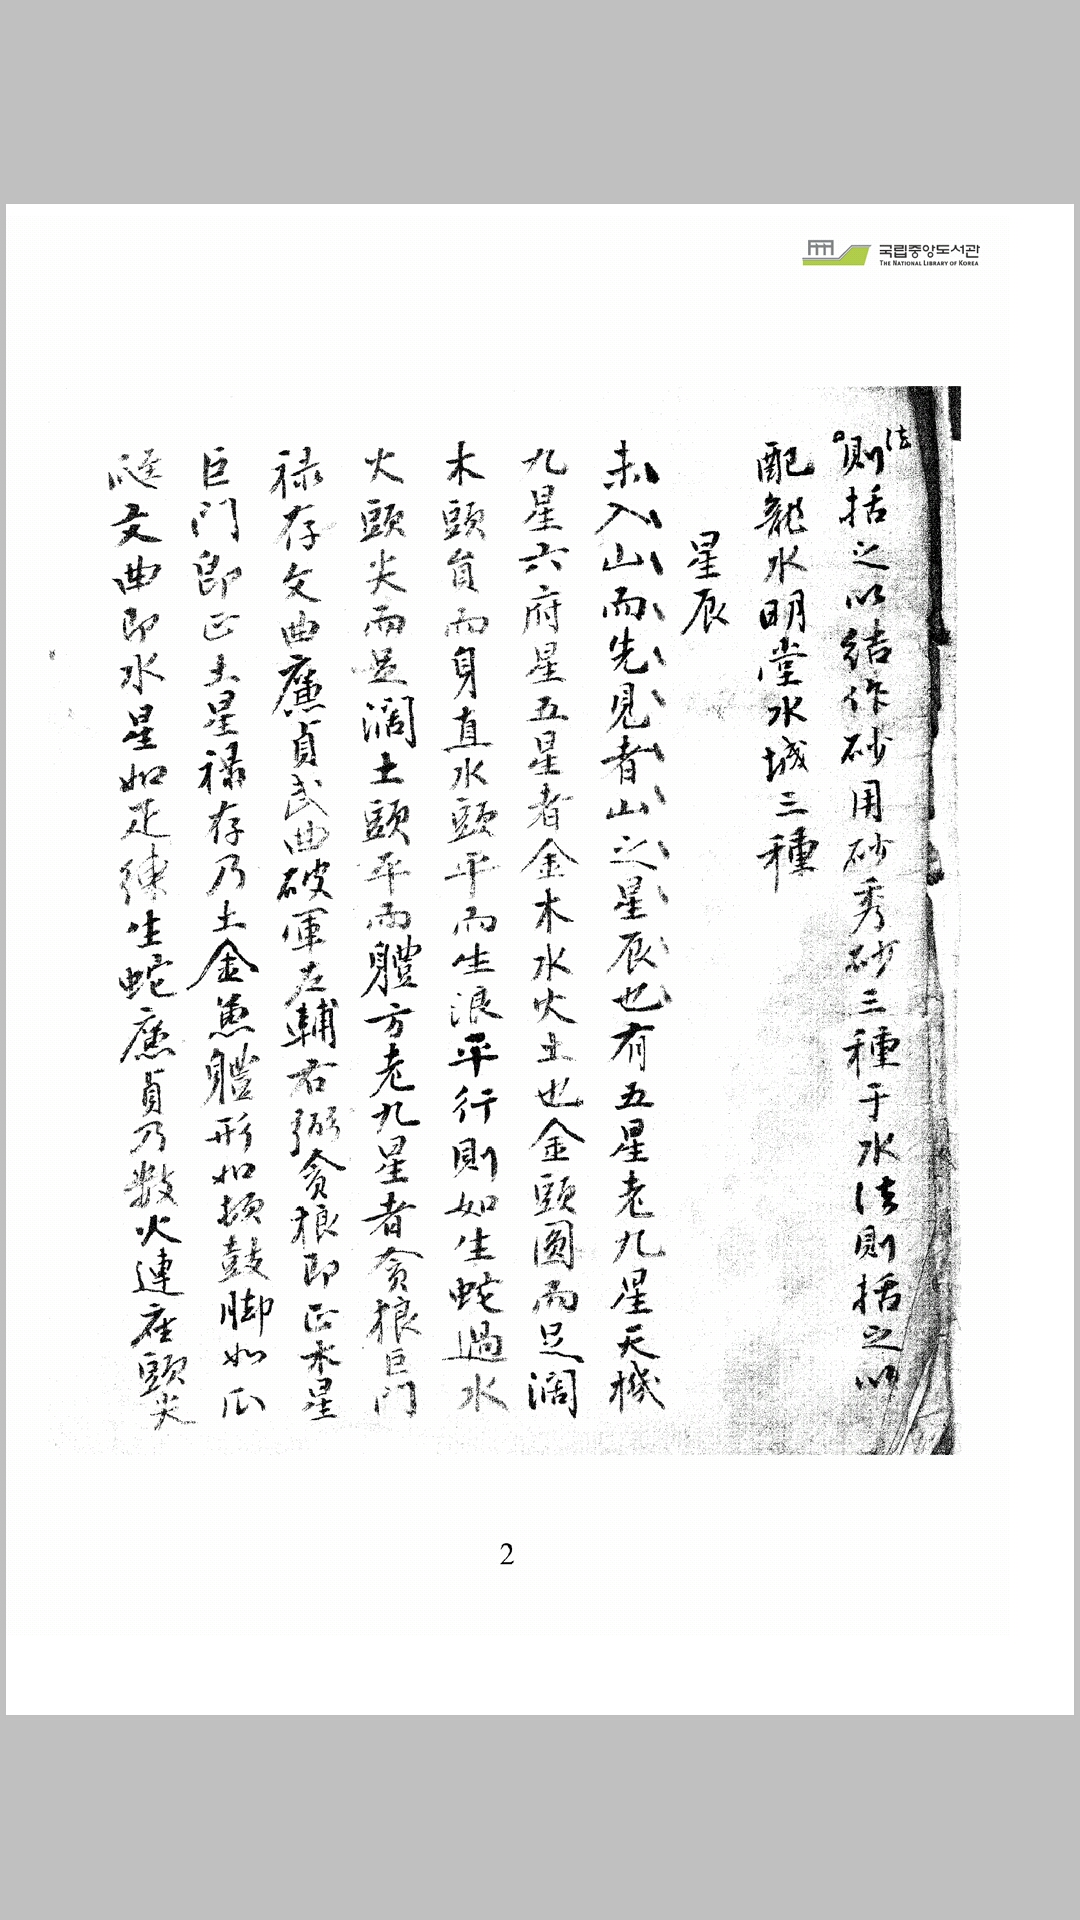 국립중앙도서관
THE NATIONAL LIBRARY OF KOREA
法則括之以結作砂用砂秀砂三種于水法則括之以
配龍水明堂水城三種
星辰
未入山而先見者山之星辰也有五星老九星天機
九星六府星五星者金木水火土也金頭圓而足濶
木頭負而身直水頭平而生浪平行則如生蛇過水
火頭尖而足濶土頭平而體方老九星者貪狼巨門
祿存文曲廉貞武曲破軍左輔右弼貪狼卽正木星
巨門卽正土星祿存乃土金兼體形如頓鼓脚如瓜
文曲卽水星如疋練生蛇廉貞乃數火連座頭尖
2